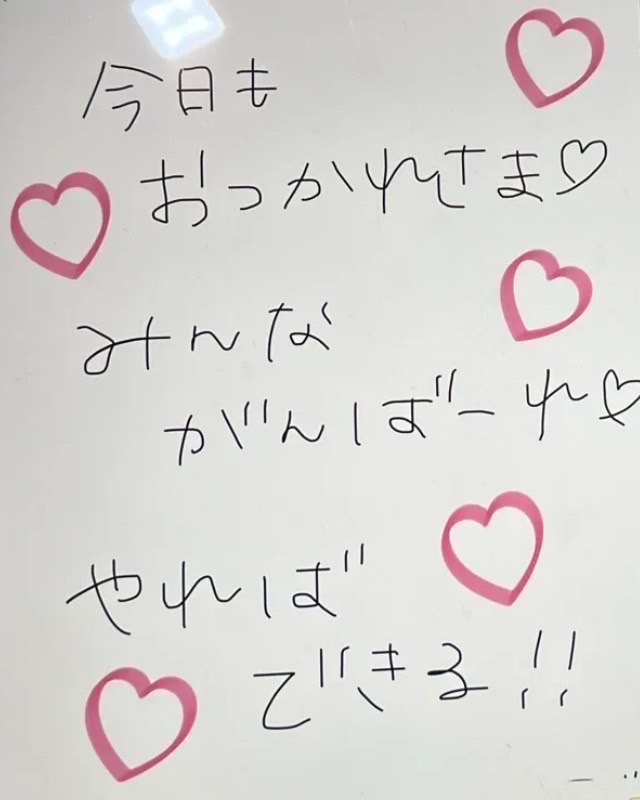 今日も
おっかれさま♡
みんな
がんばーれ♡
やれば
できる!!